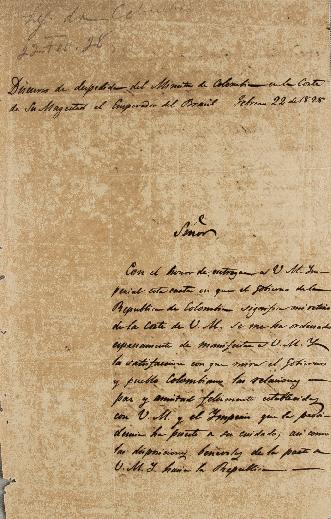 22 Feb. 28
Discurso de despedida del Ministro de Colombia en la Corte
de Su Magestad el Emperador del Brasil Febrero 22 de 1828
Señor
Con el honor de entregar a V. M. Im-
perial esta carta en que el Gobierno de la
Republica de Colombia significa mi retiro
de la Corte de V. M., se me ha ordenado
espresamente de manifestar a V. M. I.
la satisfaccion con que mira el Gobierno
y pueblo Colombiano las relaciones
paz y amistad felizmente establecidas
con V. M. y el Imperio que la provi-
dencia ha puesto a su cuidado, asi como
las disposiciones de la parte de
V. M. I. hacia la Republica